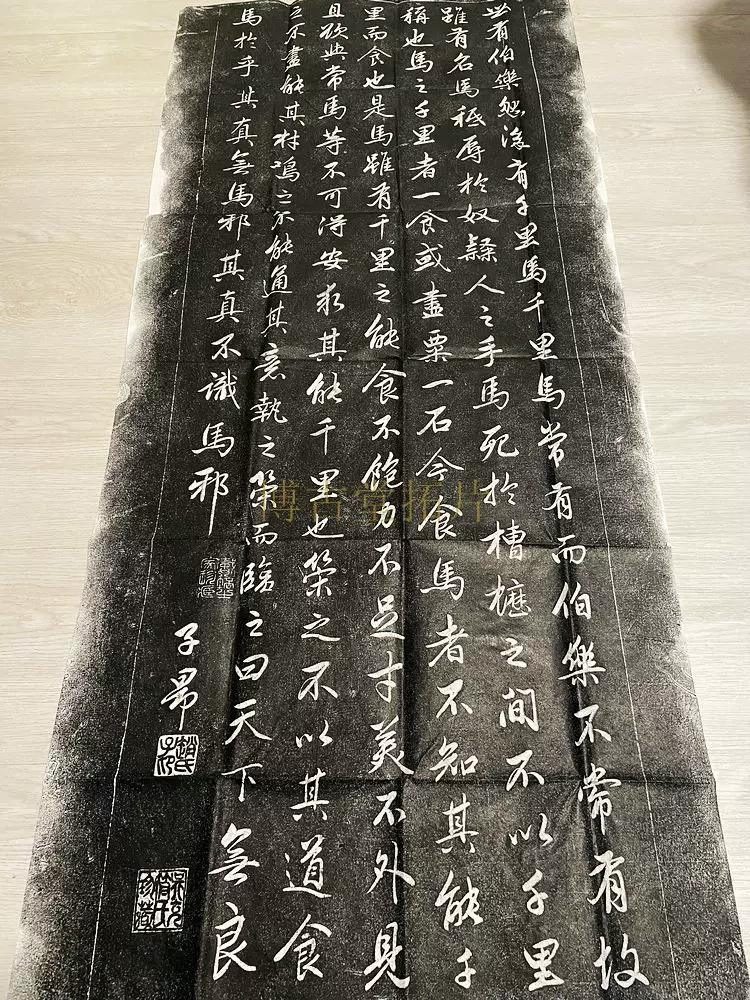 世有伯樂然後有千里馬千里馬常有而伯樂不常有故
雖有名馬秪辱於奴隸人之手馬死於槽櫪之間不以千里
稱也馬之千里者一食或盡粟一石今食馬者不知其能千
里而食也是馬雖有千里之能食不飽力不足才美不外見
且欲與常馬等不可得安求其能千里也策之不以其道食
之不盡能其材鳴之不能通其意執之策而臨之曰天下無良
馬於乎其真無馬邪其真不識馬邪
子昂
趙氏子昂
博古堂拓片